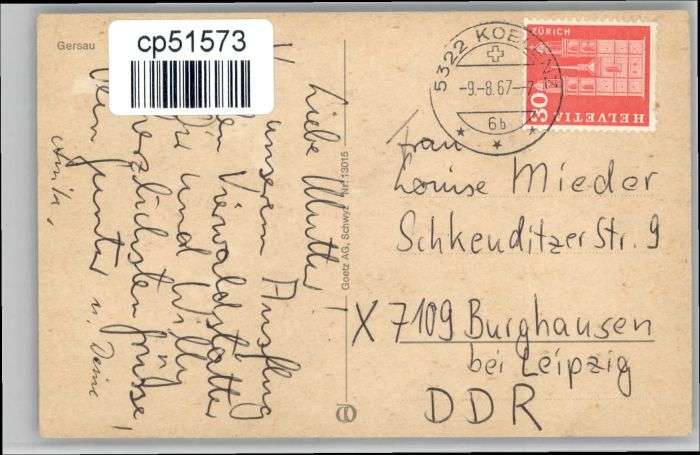 Gersau
cp51573
Liebe Mutter!
unserem Ausflug
den Vierwaldstätter
zu und Willy
herzlichsten Grüsse,
Dein Gunter u. Deine
Anita,
Goetz AG, Schwyz Nr. 13015
5322 KOE
-9.-8.67-7
6b
ZÜRICH
30
HELVETIA
Frau
Louise Mieder
Schkeuditzer Str. 9
X 7109 Burghausen
bei Leipzig
DDR